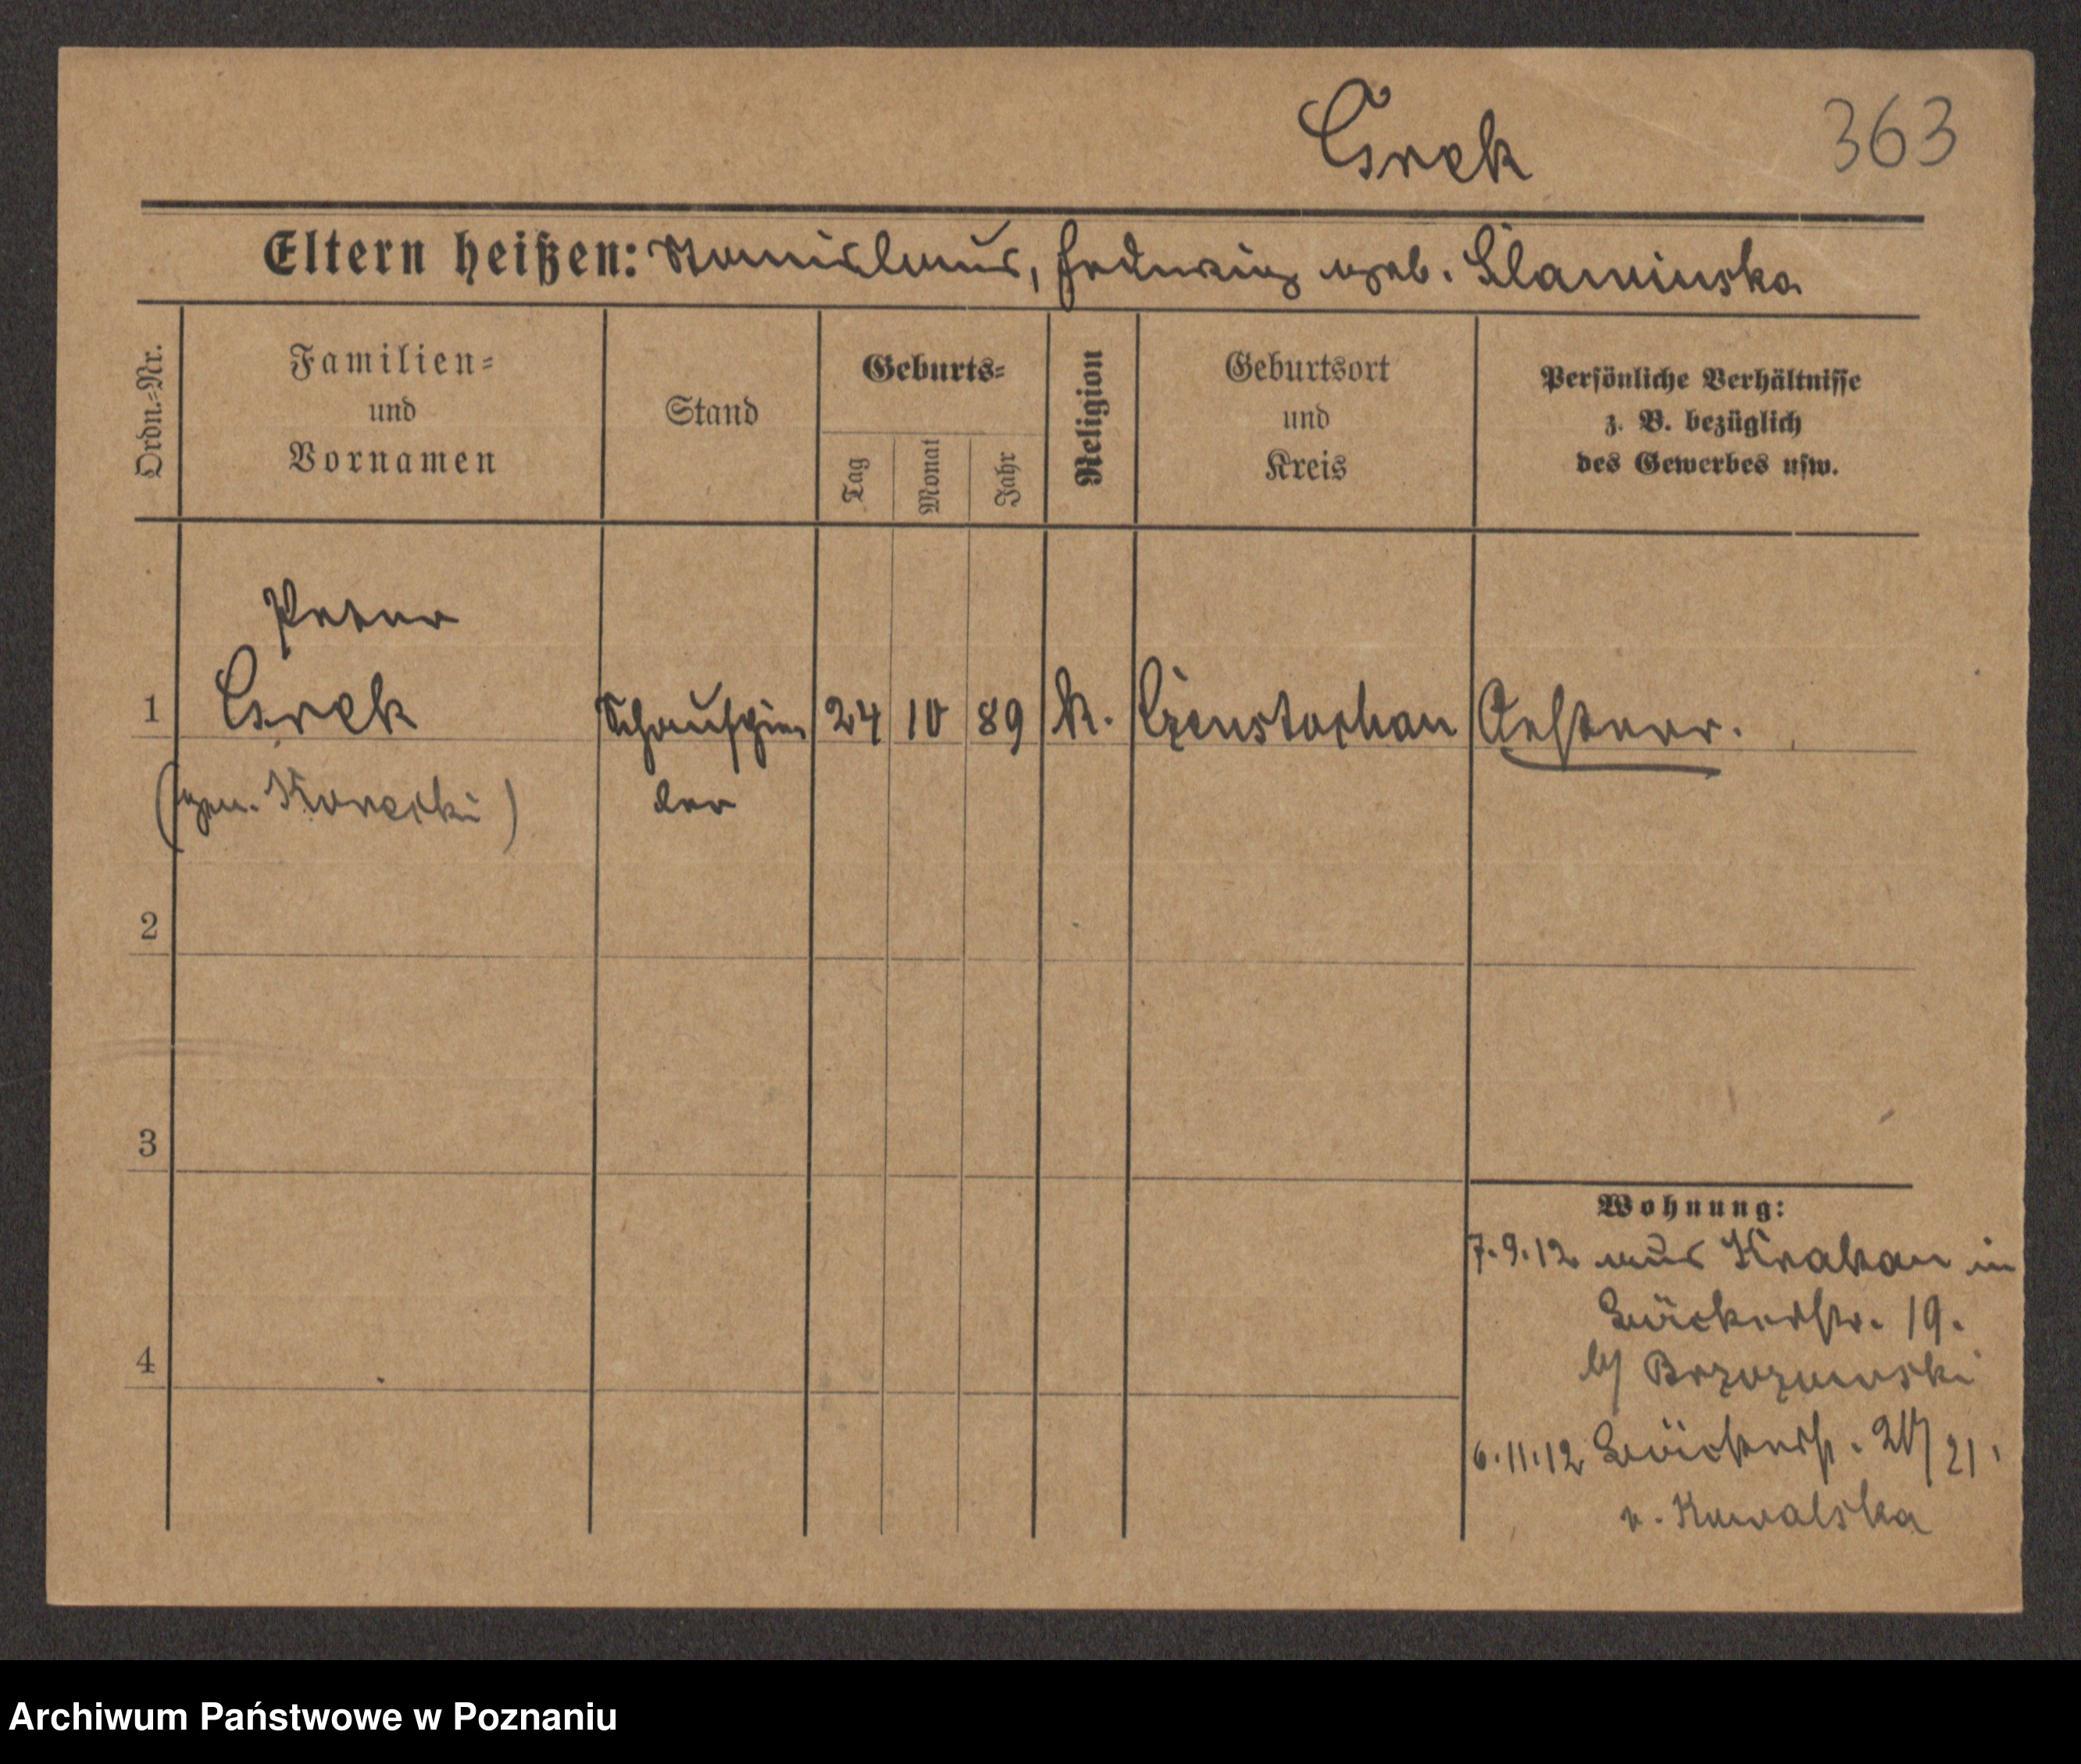 Csrek 363
Eltern heißen: Stanislaus, Hedwig geb. Slawinska
Ordn.-Nr.
Familien-
und
Vornamen
Stand
Geburts-
Tag
Monat
Jahr
Religion
Geburtsort
und
Kreis
Persönliche Verhältnisse
z. B. bezüglich
des Gewerbes usw.
Peter
1 Csrek Schauspie 24 10 89 k. Czenstochau Oesterr.
(gen. Konecki) ler
2
3
4
Wohnung:
7.9.12 aus Krakau in
Bäckerstr. 19.
b/ Brzozowski
6.11.12 Bäckerstr. 21.
v. Kowalska
Archiwum Państwowe w Poznaniu